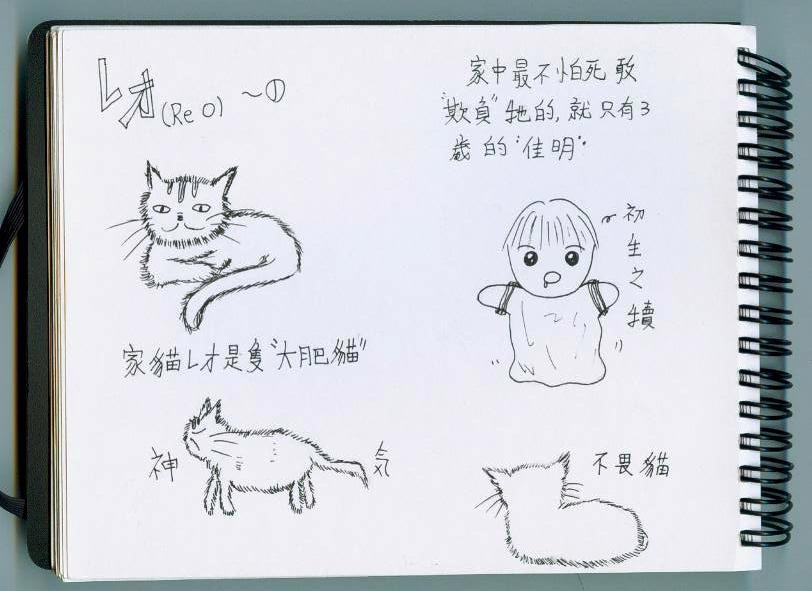 レオ(Re O) ~①
家貓レオ是隻"大肥貓"
神
気
家中最不怕死敢
"欺負"牠的,就只有3
歲的"佳明"
初生之犢
不畏貓